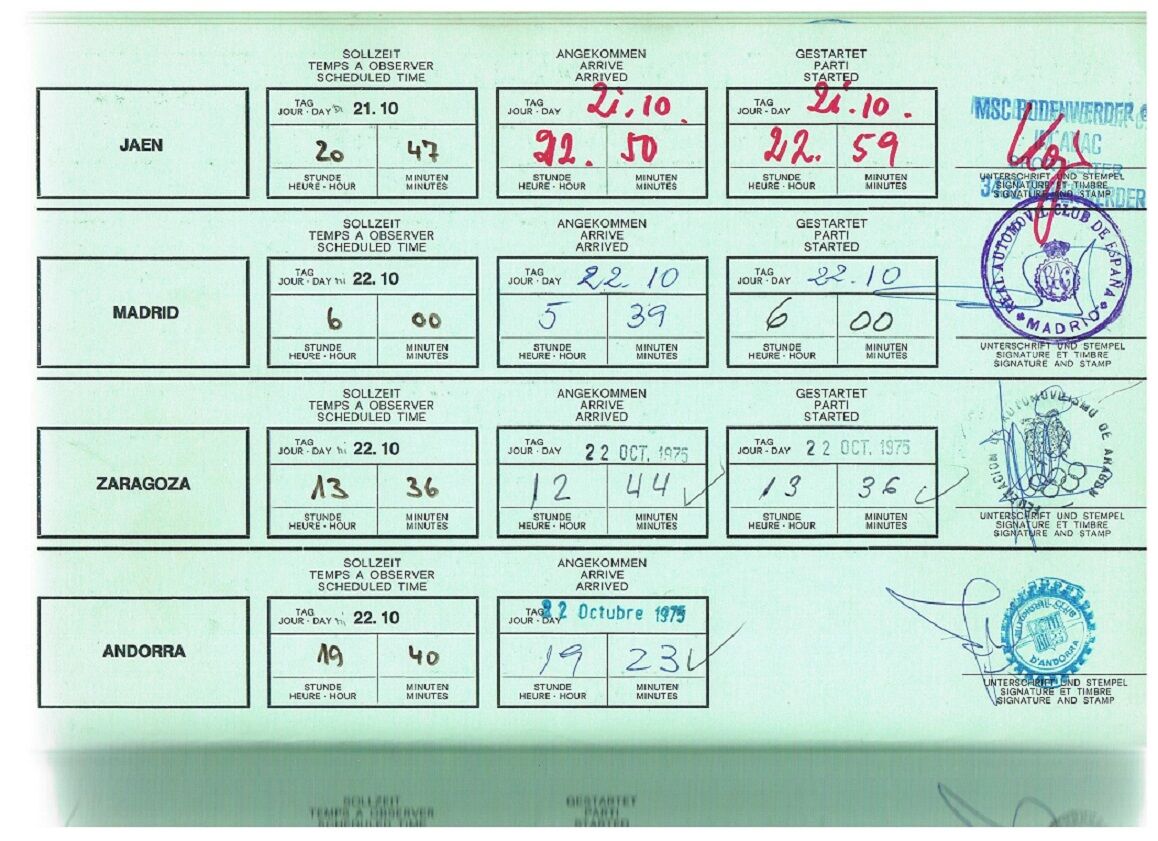 SOLLZEIT
TEMPS A OBSERVER
SCHEDULED TIME
ANGEKOMMEN
ARRIVE
ARRIVED
GESTARTET
PARTI
STARTED
JAEN
TAG
JOUR · DAY Di 21.10
20 47
STUNDE
HEURE · HOUR
MINUTEN
MINUTES
TAG
JOUR · DAY 21.10.
22. 50
STUNDE
HEURE · HOUR
MINUTEN
MINUTES
TAG
JOUR · DAY 21.10.
22. 59
STUNDE
HEURE · HOUR
MINUTEN
MINUTES
MSC BODENWERDER
UNTERSCHRIFT UND STEMPEL
SIGNATURE ET TIMBRE
SIGNATURE AND STAMP
SOLLZEIT
TEMPS A OBSERVER
SCHEDULED TIME
ANGEKOMMEN
ARRIVE
ARRIVED
GESTARTET
PARTI
STARTED
MADRID
TAG
JOUR · DAY Mi 22.10
6 00
STUNDE
HEURE · HOUR
MINUTEN
MINUTES
TAG
JOUR · DAY 22.10
5 39
STUNDE
HEURE · HOUR
MINUTEN
MINUTES
TAG
JOUR · DAY 22.10
6 00
STUNDE
HEURE · HOUR
MINUTEN
MINUTES
REAL AUTOMOVIL CLUB DE ESPAÑA
MADRID
UNTERSCHRIFT UND STEMPEL
SIGNATURE ET TIMBRE
SIGNATURE AND STAMP
SOLLZEIT
TEMPS A OBSERVER
SCHEDULED TIME
ANGEKOMMEN
ARRIVE
ARRIVED
GESTARTET
PARTI
STARTED
ZARAGOZA
TAG
JOUR · DAY Mi 22.10
13 36
STUNDE
HEURE · HOUR
MINUTEN
MINUTES
TAG
JOUR · DAY 22 OCT. 1975
12 44
STUNDE
HEURE · HOUR
MINUTEN
MINUTES
TAG
JOUR · DAY 22 OCT. 1975
13 36
STUNDE
HEURE · HOUR
MINUTEN
MINUTES
FEDERACION DE AUTOMOVILISMO DE ARAGON
UNTERSCHRIFT UND STEMPEL
SIGNATURE ET TIMBRE
SIGNATURE AND STAMP
SOLLZEIT
TEMPS A OBSERVER
SCHEDULED TIME
ANGEKOMMEN
ARRIVE
ARRIVED
ANDORRA
TAG
JOUR · DAY Mi 22.10
19 40
STUNDE
HEURE · HOUR
MINUTEN
MINUTES
TAG
JOUR · DAY 22 Octubre 1975
19 23
STUNDE
HEURE · HOUR
MINUTEN
MINUTES
AUTOMOBIL CLUB
D'ANDORRA
UNTERSCHRIFT UND STEMPEL
SIGNATURE ET TIMBRE
SIGNATURE AND STAMP
SOLLZEIT
TEMPS A OBSERVER
SCHEDULED TIME
GESTARTET
PARTI
STARTED